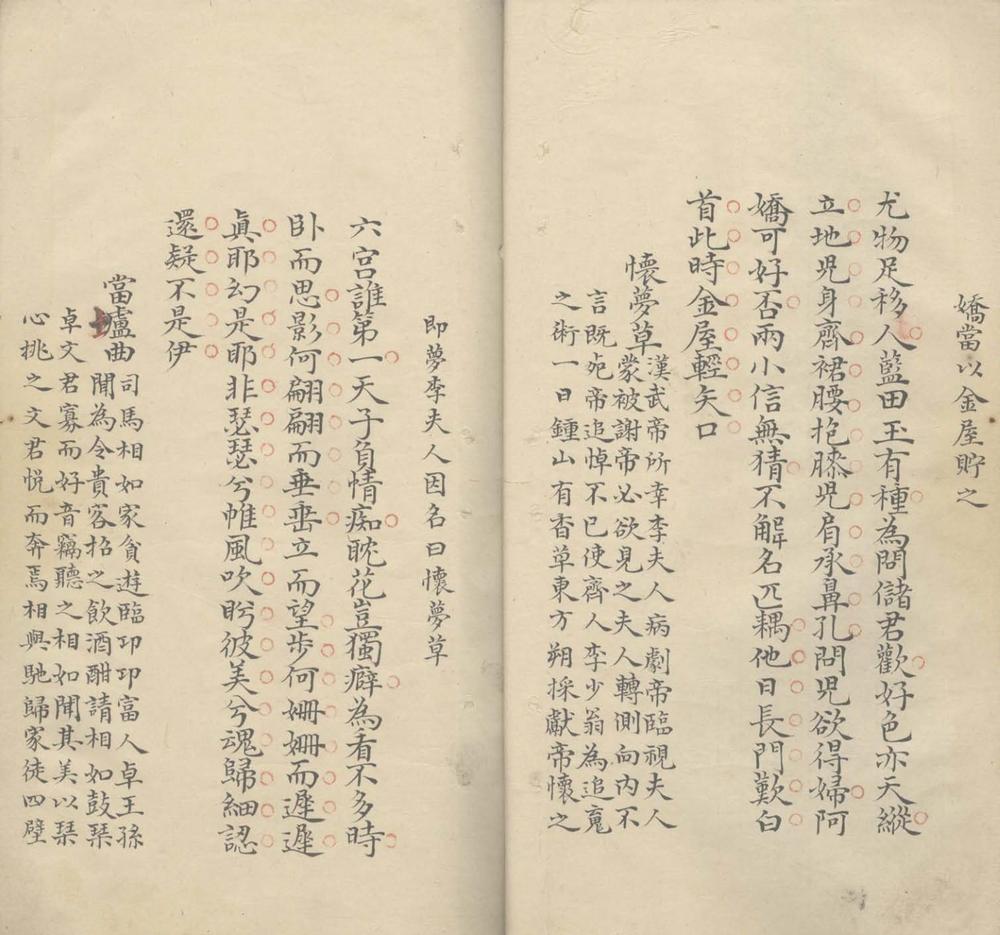 嬌當以金屋貯之
尤物足移人藍田玉有種為問儲君歡好色亦天縱
立地児身齊裙腰抱膝児肩承鼻孔問児欲得婦阿
嬌可好否兩小信無猜不解名匹耦他日長門歎白
首此時金屋輕矢口
懷夢草
漢武帝所幸李夫人病劇帝臨視夫人
蒙被謝帝必欲見之夫人轉側向内不
言既死帝追悼不已使齊人李少翁為追䰟
之術一日鍾山有香草東方朔採獻帝懷之
即夢李夫人因名曰懷夢草
六宫誰第一天子負情痴眈花豈獨癖為看不多時
卧而思影何翩翩而垂垂立而望步何姍姍而遲遲
真耶幻是耶非瑟瑟兮帷風吹眄彼美兮魂歸細認
還疑不是伊
當壚曲
司馬相如家貪遊臨卭卭富人卓王孫
聞為令貴客招之飲酒酣請相如鼓琴
卓文君寡而好音竊聽之相如聞其美以琴
心挑之文君悦而奔焉相與馳歸家徒四壁